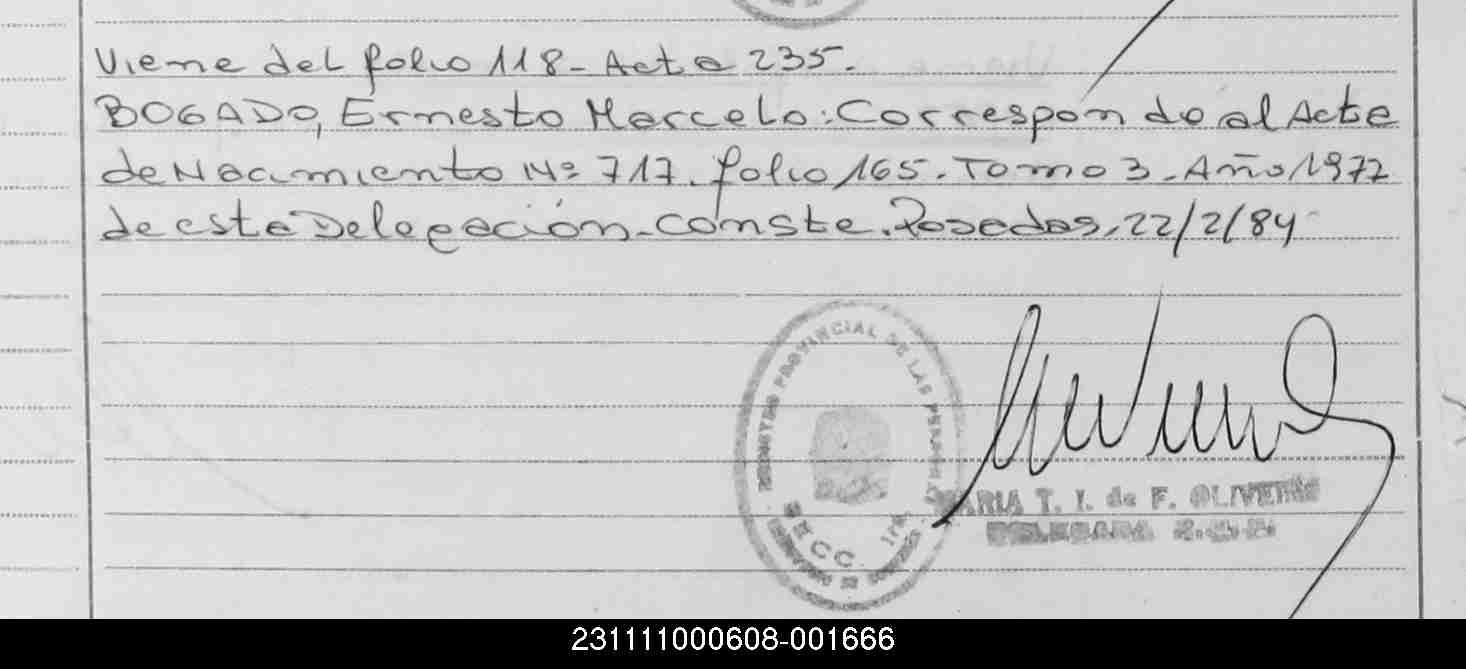 Viene del folio 118 - Acta 235.
BOGADO, Ernesto Marcelo: Correspon de al Acta
de Nacimiento Nº 717. folio 165. Tomo 3. Año 1977
de esta Delegación. Conste. Posadas, 22/2/84
PROVINCIAL DE LAS PERSONAS
SECC. 1ra.
MARIA T. I. de F. OLIVEIRA
DELEGADA
231111000608-001666